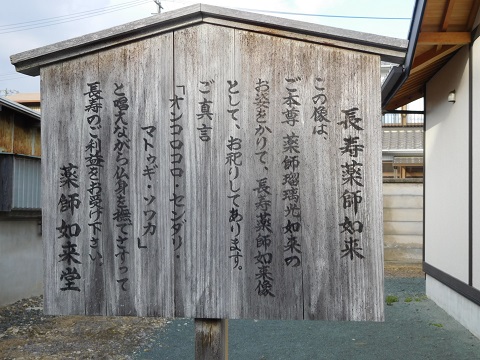 長寿薬師如来
この像は、
ご本尊 薬師瑠璃光如来の
お姿をかりて、長寿薬師如来像
として、お祀りしてあります。
ご真言
「オンコロコロ・センダリ・
マトゥギ・ソワカ」
と唱えながら仏身を撫でさすって
長寿のご利益をお受け下さい。
薬師如来堂